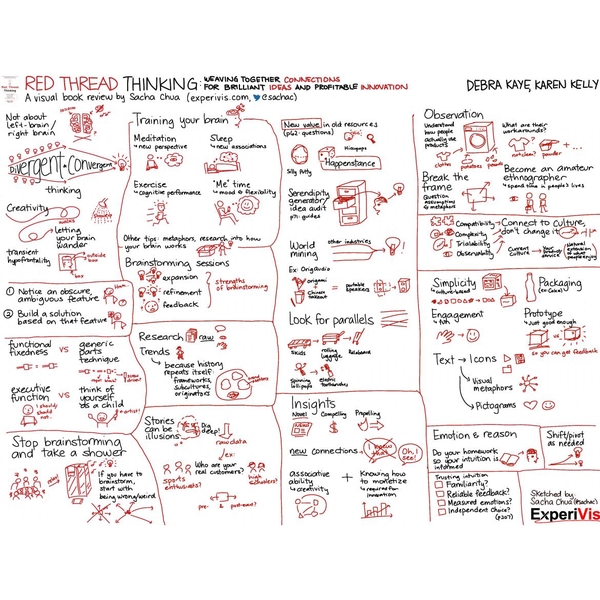 RED THREAD THINKING: WEAVING TOGETHER CONNECTIONS
FOR BRILLIANT IDEAS AND PROFITABLE INNOVATION
A visual book review by Sacha Chua (experivis.com, @sachac)
DEBRA KAYE, KAREN KELLY
Not about
left-brain/
right brain
Divergent + convergent
thinking
Creativity
letting
your brain
wander
transient
hypofrontality
outside
box
① Notice an obscure,
ambiguous feature
② Build a solution
based on that feature
functional
fixedness
vs
generic
parts
technique
executive
function
vs
think of
yourself
as a child
I should
should
not...
artist!
Stop brainstorming
and take a shower
relax!
If you have to
brainstorm,
start with
being wrong/weird
Training your brain
Meditation
new perspective
Sleep
new associations
Exercise
cognitive performance
"Me" time
mood & flexibility
Other tips: metaphors, research into how
your brain works
Brainstorming sessions
expansion
refinement
feedback
strengths of
brainstorming
Research raw
Trends
because history
repeats itself:
frameworks,
subcultures,
originators
Stories
can be
illusions
Dig
deep!
raw data
ex:
Who are your
real customers?
sports
enthusiasts?
pre- & post-
New value in old resources
(p62: questions)
Silly Putty
Hiccups
Happenstance
Serendipity
generator/
idea audit
p71: guides
World
mining
other industries
Ex: OrigAudio
origami
Chinese
takeout
= portable
speakers
Look for parallels
Skids
rolling
luggage
Rollaboard
Spinning
lollipops
electric
toothbrushes
Insights
Novel
Compelling
Propelling
NEWS
new connections
I knew
that
Oh, I
see!
associative
ability
creativity
+
Knowing how
to monetize
required for
innovation
Observation
Understand
how people
actually use
products
What are their
workarounds?
clothes
potatoes
not clean?
powder
+ ...
Break the
frame
Question
assumptions
& metaphors
Become an amateur
ethnographer
spend time in people's lives
Compatibility
Complexity
Trialability
Observability
Connect to culture,
don't change it
Current
culture
Natural extension
of what
people enjoy
Simplicity
culture-based
Packaging
(ex: Coke)
Engagement
fun
Prototype
Just good enough
so you can get feedback
Text → Icons
Visual
metaphors
Pictograms
Emotion & reason
Do your homework
so your intuition is
informed
Shift/pivot
as needed
Trusting intuition
Familiarity?
Reliable feedback?
Measured emotions?
Independent choice?
(p207)
Sketched by:
Sacha Chua (@sachac)
ExperiVis